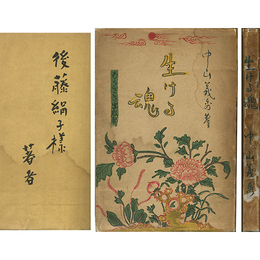 後藤絹子様
著者
中山義秀著
生ける
魂
生ける魂 中山義秀